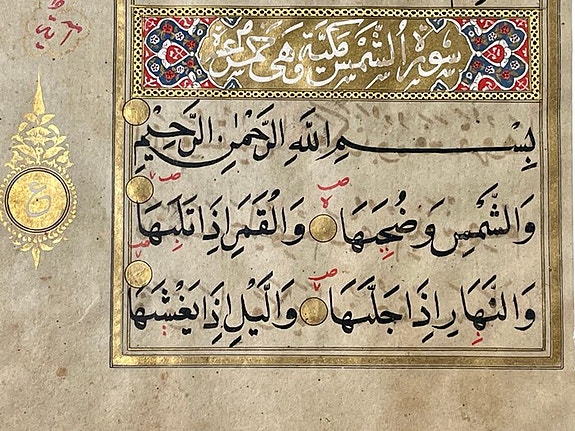 سورة الشمس مكية وهى خمس
بِسْمِ اللهِ الرَّحْمٰنِ الرَّحِيمِ
وَالشَّمْسِ وَضُحٰيهَا وَالْقَمَرِ اِذَا تَلٰيهَا
ع
وَالنَّهَارِ اِذَا جَلّٰيهَا وَالَّيْلِ اِذَا يَغْشٰيهَا